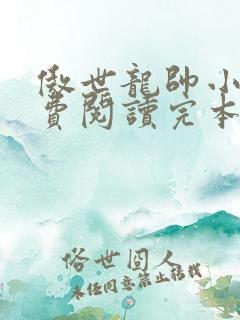 傲世龍帥小
費閱讀完本
俗世囧人
未经同意禁止转载